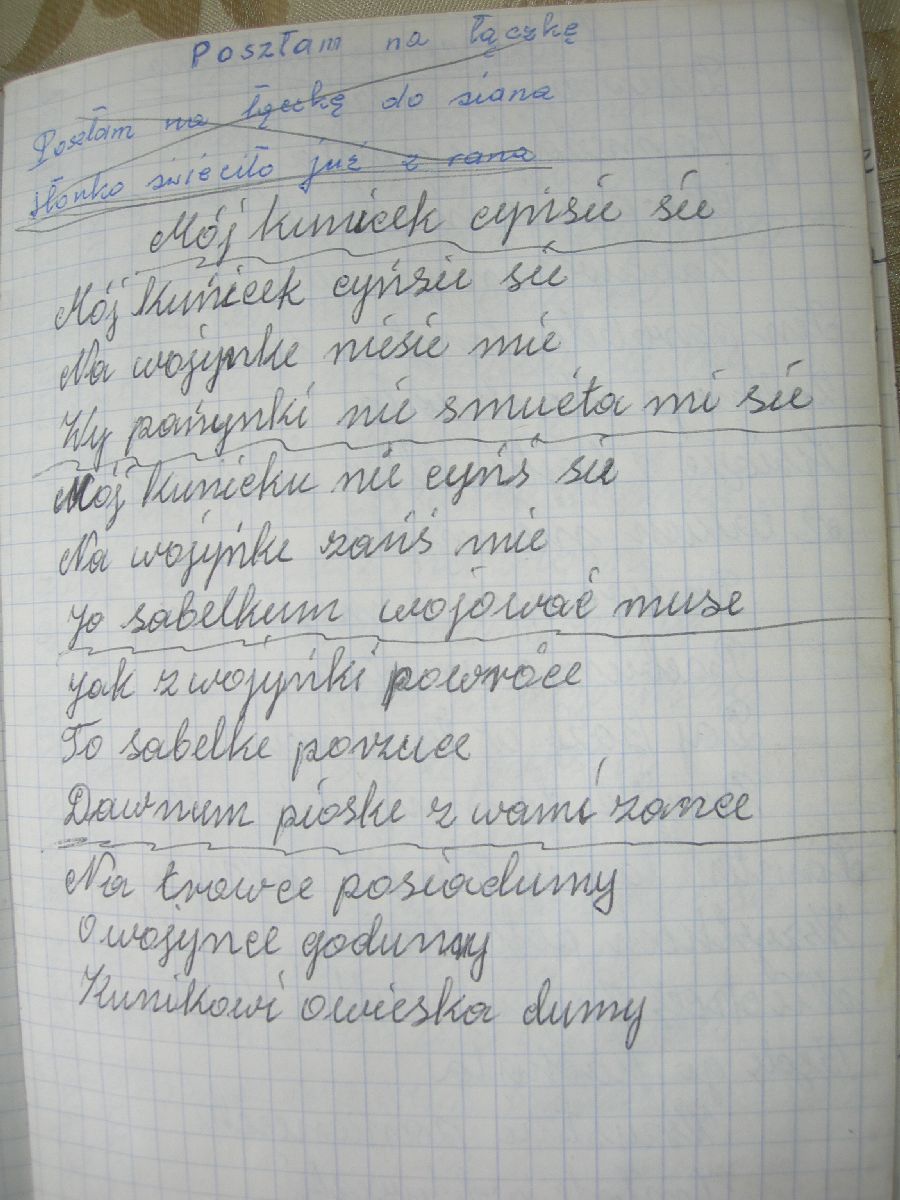 Poszłam na łączkę
Poszłam na łączkę do siana
słonko świeciło już z rana
Mój kunicek cyńsie sie
Mój kuńicek cyńsie sie
Na wojynke niesie mie
Wy pańynki nie smućta mi sie
Mój kunicku nie cyńś sie
Na wojynke zańś mie
Jo sabelkum wojować muse
Jak z wojynki powróce
To sabelke porzuce
Dawnum pioske z wami zance
Na trowce posiadumy
O wojynce godumy
Kunikowi owieska dumy